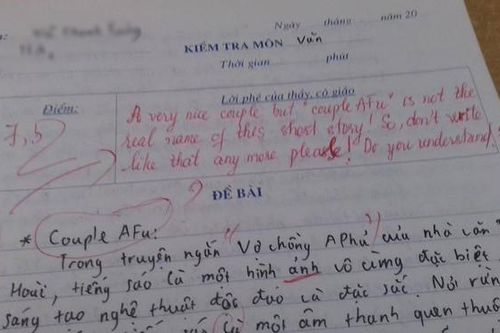 Ngày tháng năm 20
KIỂM TRA MÔN Văn
Thời gian phút
Điểm:
7,5
Lời phê của thầy, cô giáo
A very nice couple but "couple AFu" is not the
real name of this short story! So, don't write
like that any more please! Do you understand
?
ĐỀ BÀI
* Couple AFu:
Trong truyện ngắn "Vợ chồng A Phủ" của nhà văn
Hoài, tiếng sáo là một hình ảnh vô cùng đặc biệt
sáng tạo nghệ thuật độc đáo và đặc sắc. Nói rừn
một âm thanh quen thuộ